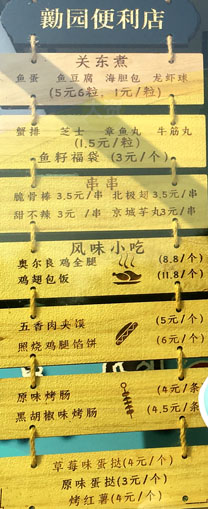 勤园便利店
关东煮
鱼蛋 鱼豆腐 海胆包 龙虾球
(5元6粒，1元/粒)
蟹排 芝士 章鱼丸 牛筋丸
(1.5元/粒)
鱼籽福袋 (3元/个)
串串
脆骨棒 3.5元/串 北极翅 3.5元/串
甜不辣 3元/串 京城芋丸3元/串
风味小吃
奥尔良鸡全腿 (8.8/个)
鸡翅包饭 (11.8/个)
五香肉夹馍 (5元/个)
照烧鸡腿馅饼 (6元/个)
原味烤肠 (4元/条)
黑胡椒味烤肠 (4.5元/条)
草莓味蛋挞(4元/个)
原味蛋挞(3元/个)
烤红薯(4元/个)